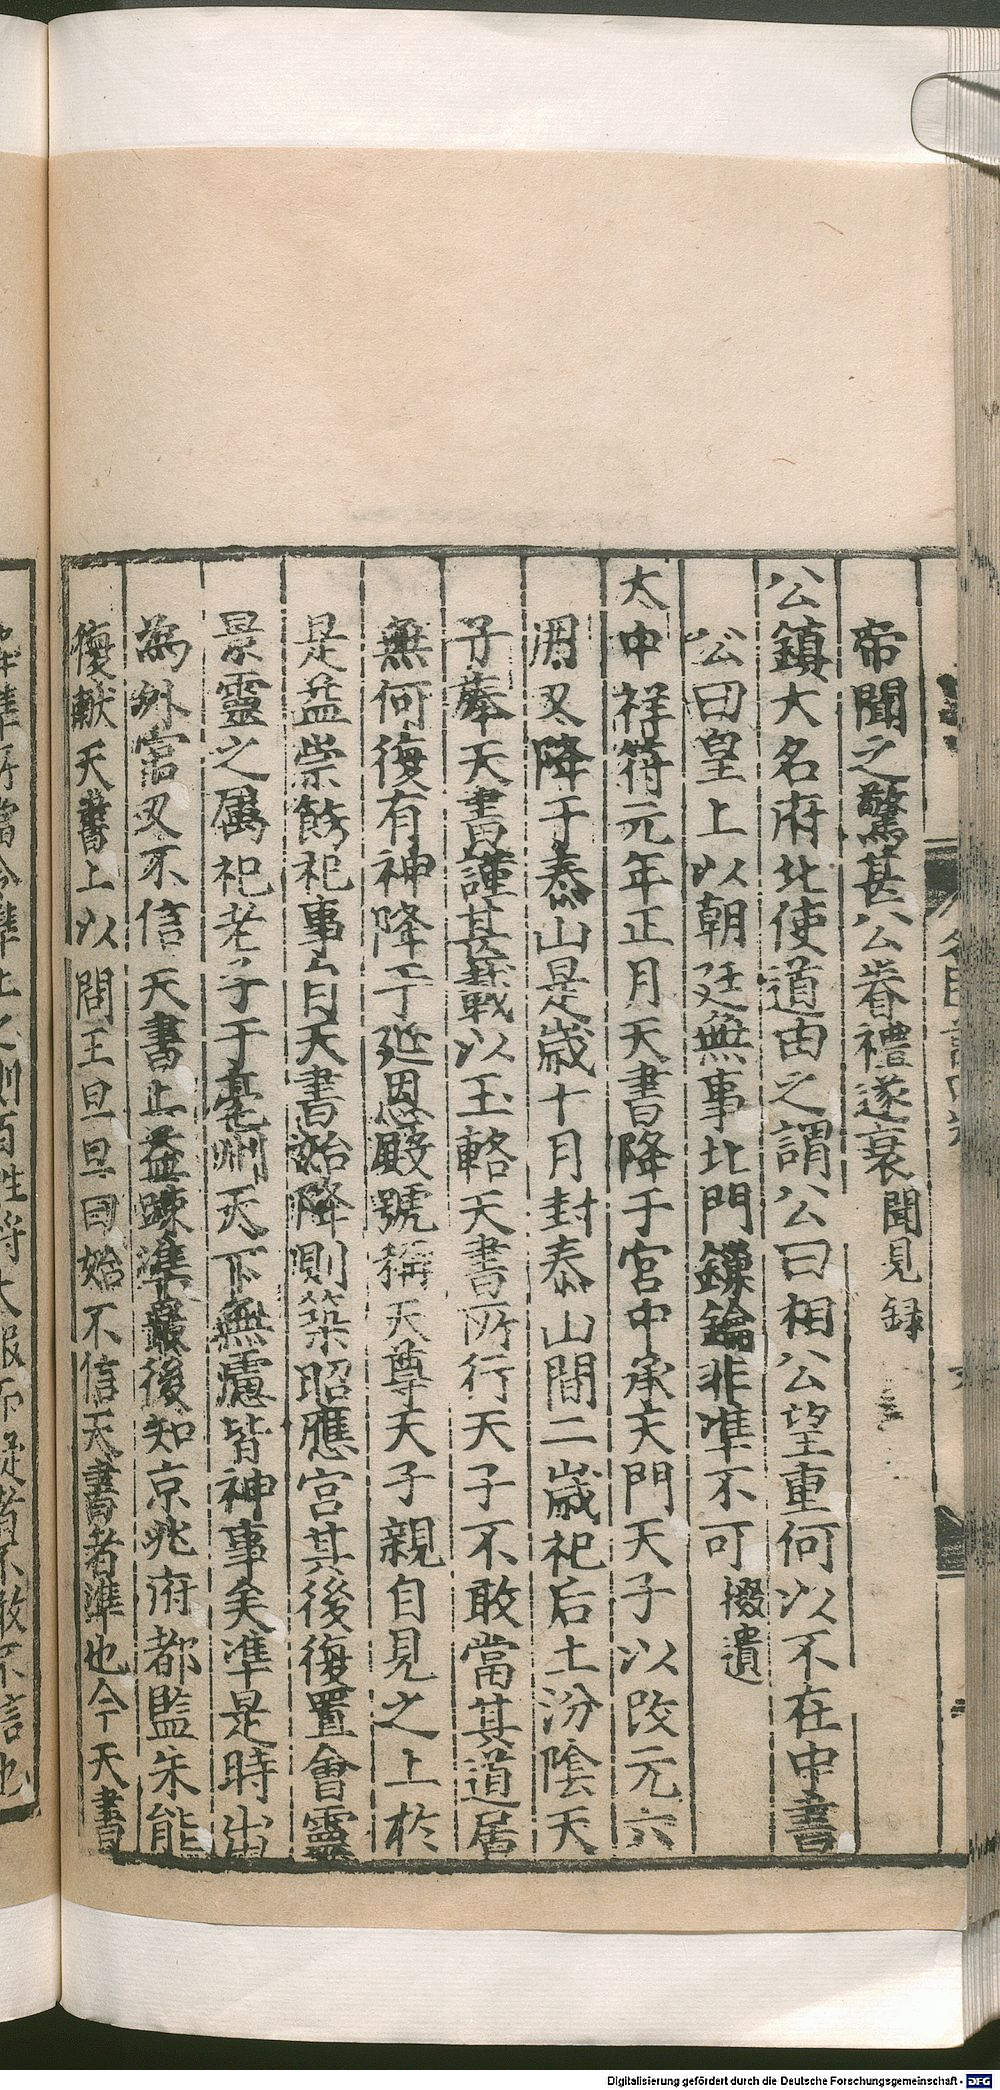 帝聞之驚甚公眷禮遂衰聞見録
公鎮大名府北使道由之謂公曰相公望重何以不在中書
公曰皇上以朝廷無事北門鏁鑰非準不可掇遺
大中祥符元年正月天書降于宮中承天門天子以改元六
月又降于泰山是歲十月封泰山間二歲祀后土汾陰天
子奉天書謹甚載以玉輅天書所行天子不敢當其道居
無何復有神降于延恩殿號稱天尊天子親自見之上於
是益崇飾祀事自天書始降則築昭應宮其後復置會靈
景靈之屬祀老子于亳州天下無慮皆神事矣準是時出
為外官又不信天書上益踈準最後知京兆府都監朱能
復獻天書上以問王旦旦曰始不信天書者準也今天書
Digitalisierung gefördert durch die Deutsche Forschungsgemeinschaft - DFG